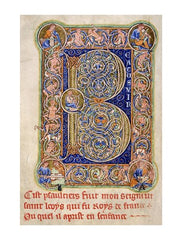 Cist psaultiers fuit mon seigneur
saint looys qui fu Roys de france
Ou quel il aprist en senfance